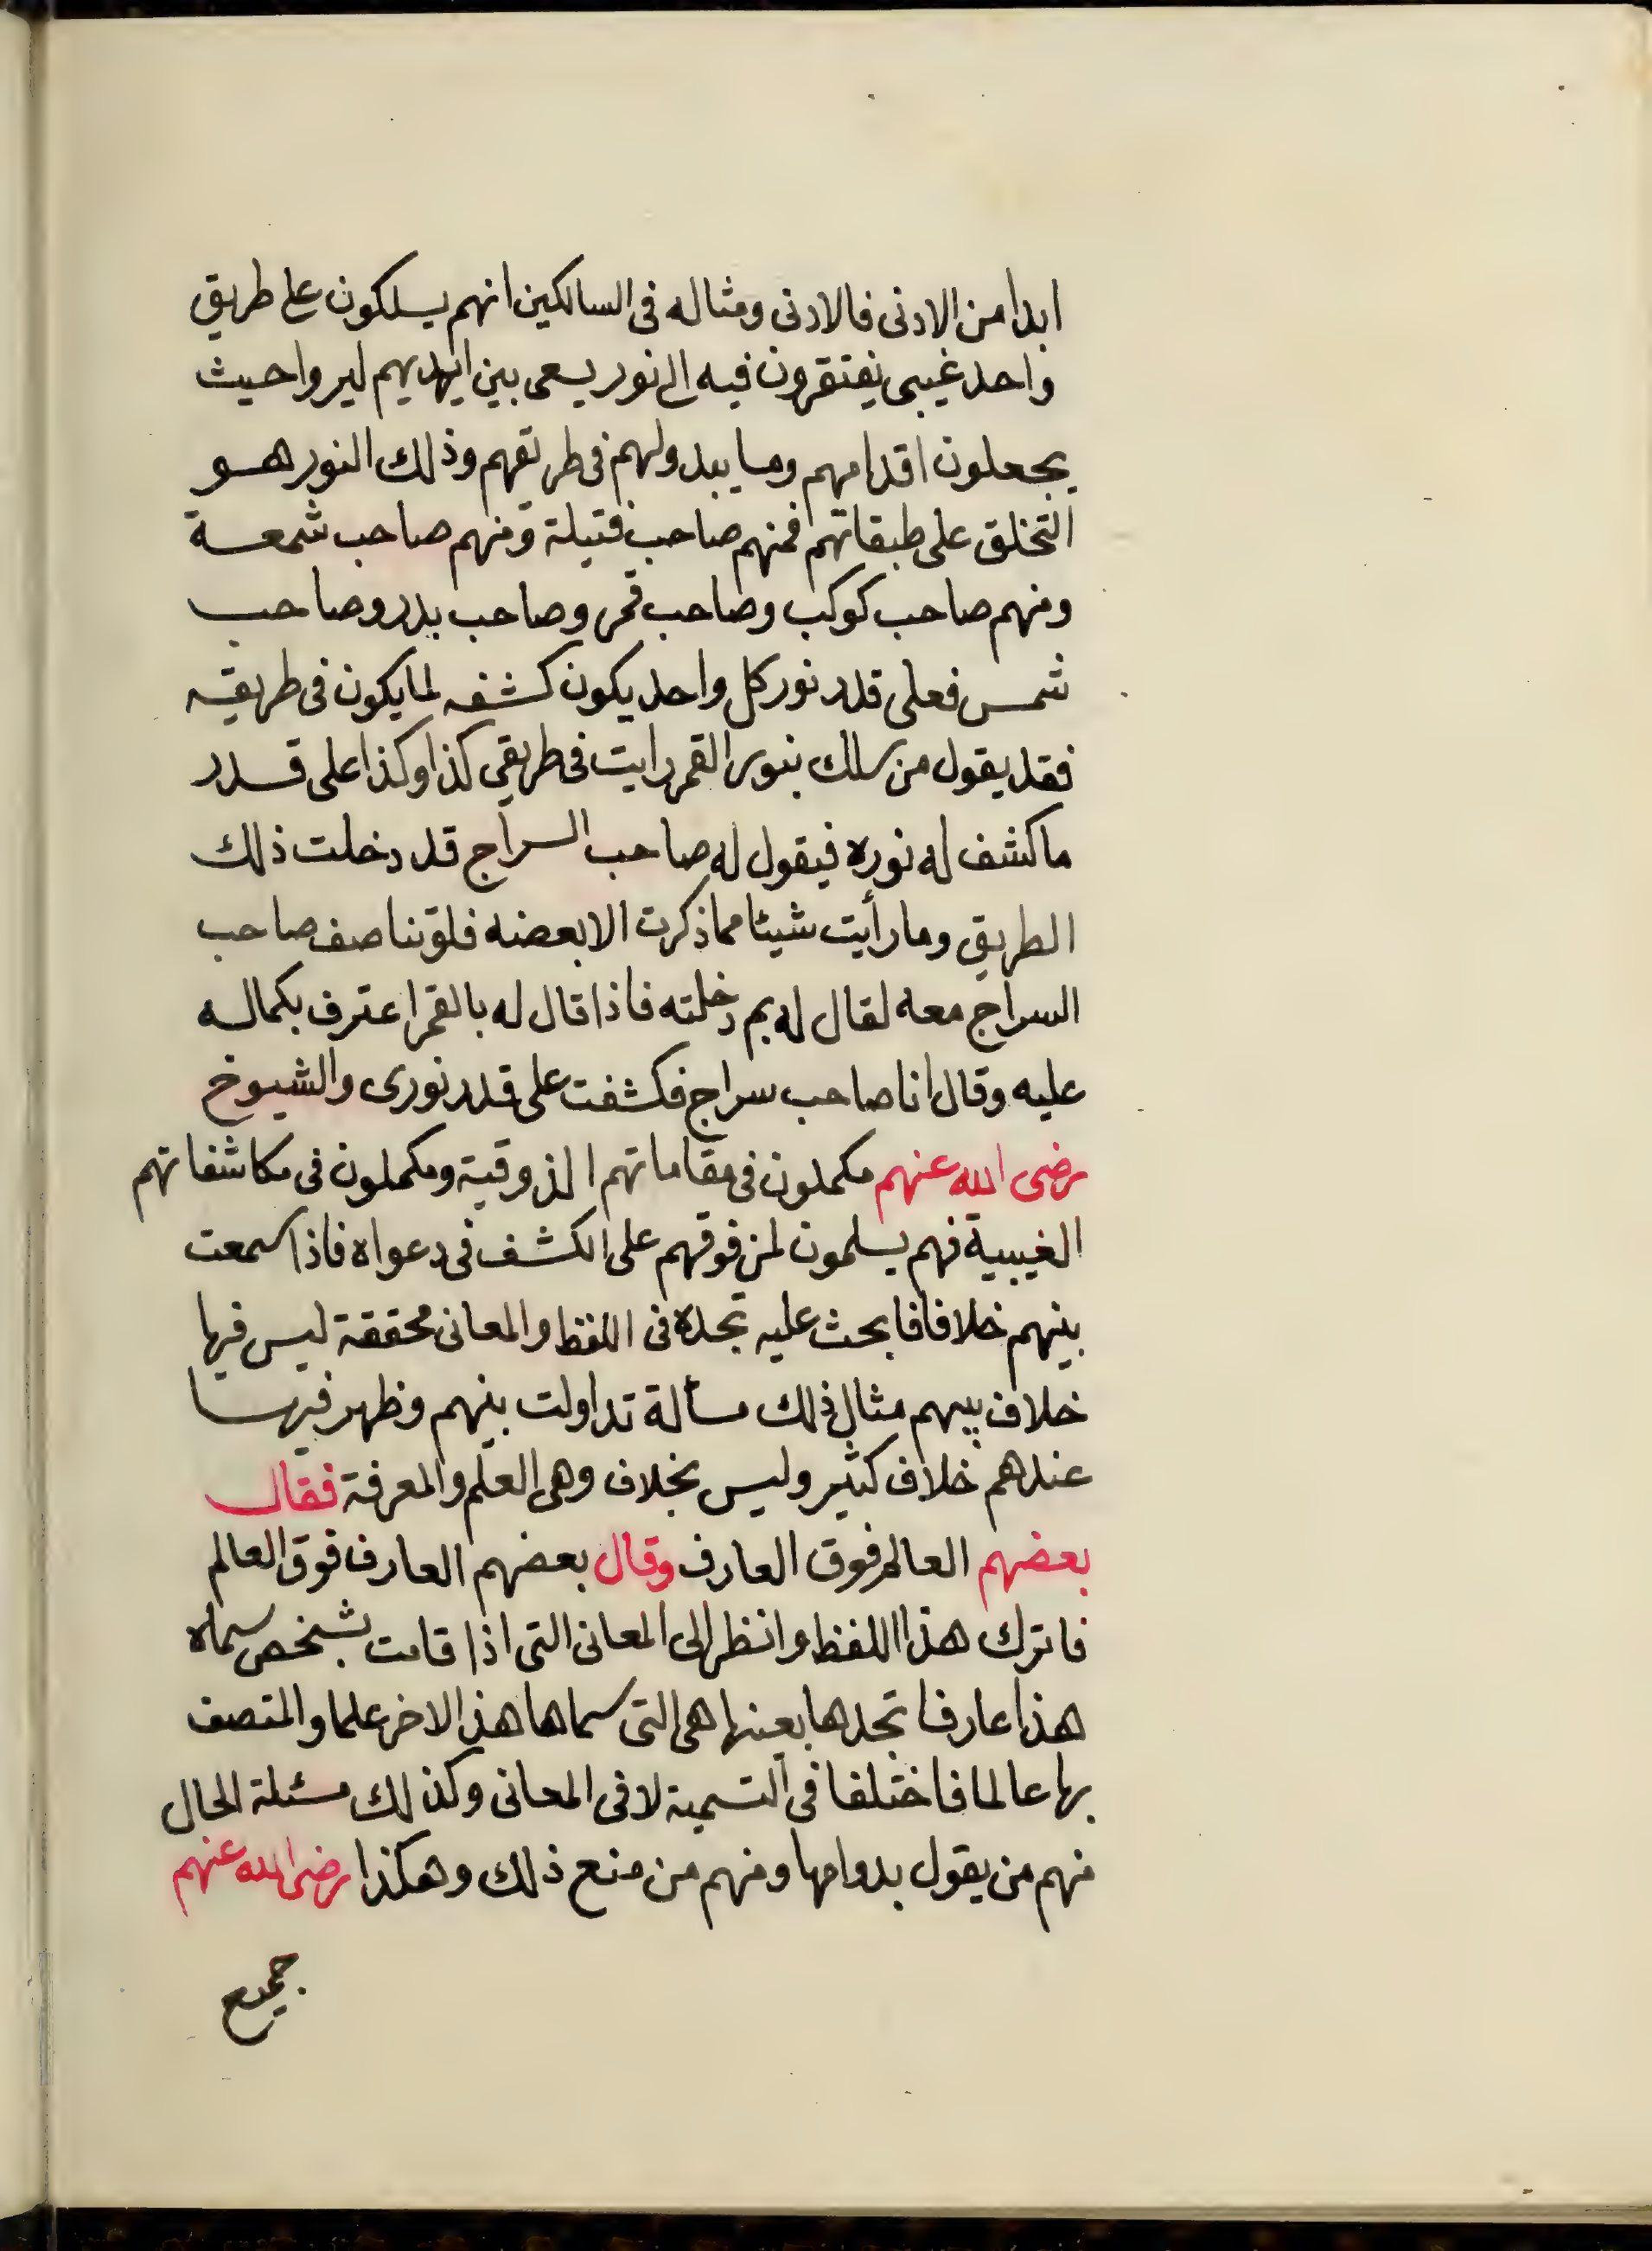 ابدا من الادنى فالادنى ومثاله فى السالكين انهم يسلكون على طريق
واحد غيبى يفتقرون فيه الى نور يسعى بين ايديهم ليروا حيث
يجعلون اقدامهم وما يبدولهم فى طريقهم وذلك النور هو
التخلق على طبقاتهم فمنهم صاحب فتيلة ومنهم صاحب شمعة
ومنهم صاحب كوكب وصاحب قمر وصاحب بدر وصاحب
شمس فعلى قدر نور كل واحد يكون كشفه لما يكون فى طريقه
فقد يقول من سلك بنور القمر رايت فى طريقى كذا وكذا على قدر
ما كشف له نوره فيقول له صاحب السراج قد دخلت ذلك
الطريق وما رأيت شيئا مما ذكرت الا بعضه فلو تناصف صاحب
السراج معه لقال له بم دخلته فاذا قال له بالقمر اعترف بكماله
عليه وقال انا صاحب سراج فكشفت على قدر نورى والشيوخ
رضى الله عنهم مكملون فى مقاماتهم الذوقية ومكملون فى مكاشفاتهم
الغيبية فهم يسلمون لمن فوقهم على الكشف فى دعواه فاذا سمعت
بينهم خلافا فابحث عليه تجده فى اللفظ والمعانى محققة ليس فيها
خلاف بينهم مثال ذلك مسألة تداولت بينهم وظهر فيها
عندهم خلاف كثير وليس بخلاف وهى العلم والمعرفة فقال
بعضهم العالم فوق العارف وقال بعضهم العارف فوق العالم
فاترك هذا اللفظ وانظر الى المعانى التى اذا قامت بشخص سماه
هذا عارفا تجدها بعينها هى التى سماها هذا الاخر علما والمتصف
بها عالما فاختلفا فى التسمية لا فى المعانى وكذلك مسئلة الحال
منهم من يقول بدوامها ومنهم من منع ذلك وهكذا رضى الله عنهم
جميع